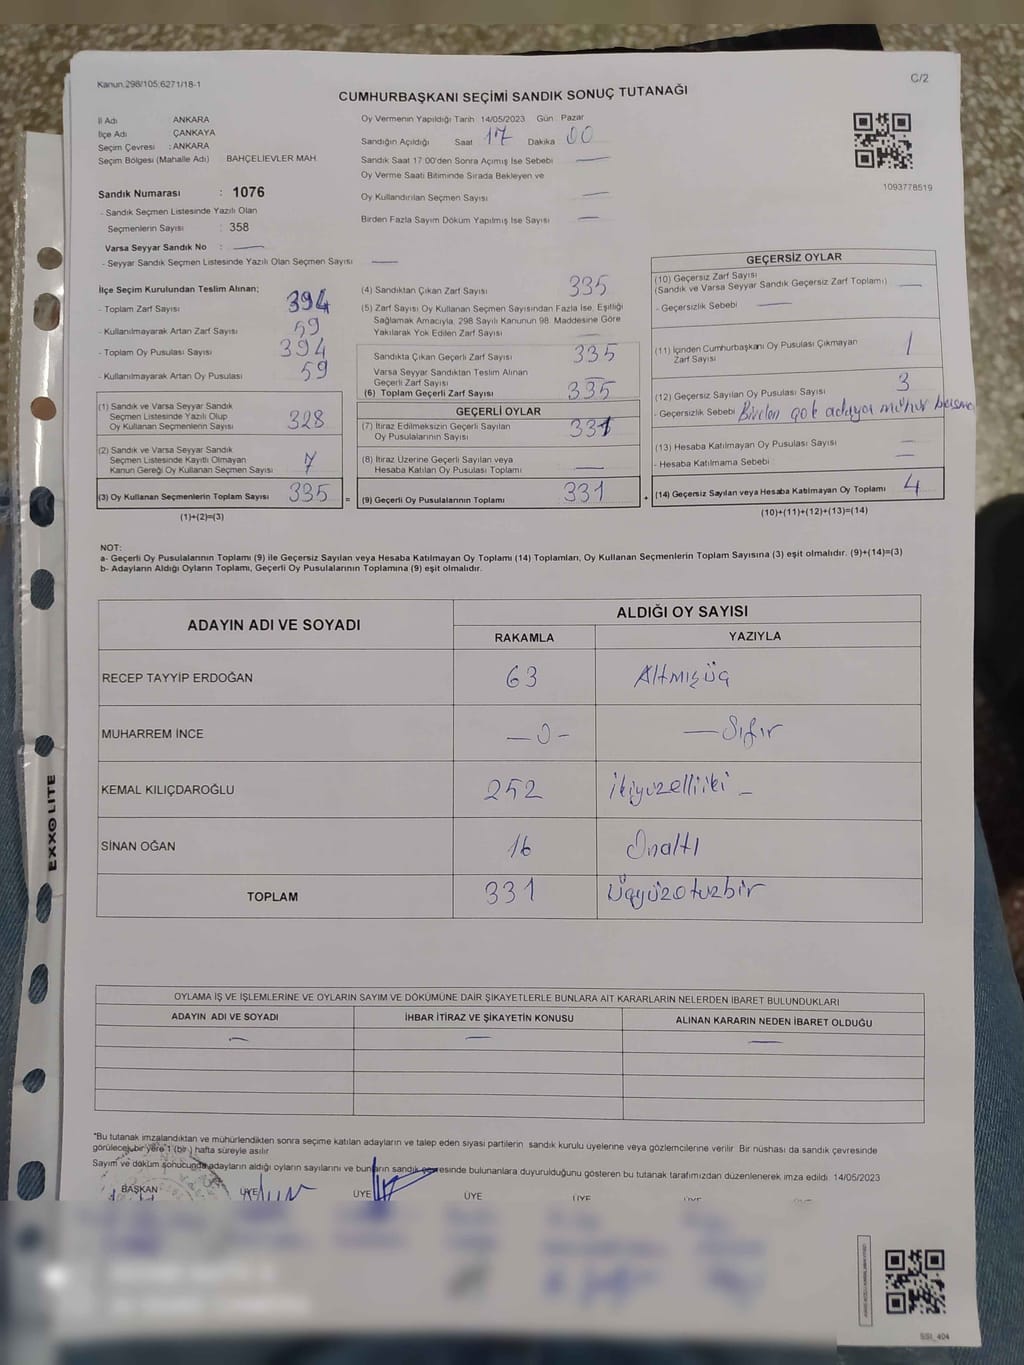 Kanun.298/105;6271/18-1
C/2
CUMHURBAŞKANI SEÇİMİ SANDIK SONUÇ TUTANAĞI
İl Adı ANKARA
İlçe Adı ÇANKAYA
Seçim Çevresi : ANKARA
Seçim Bölgesi (Mahalle Adı) BAHÇELİEVLER MAH.
Oy Vermenin Yapıldığı Tarih 14/05/2023 Gün Pazar
Sandığın Açıldığı Saat 17 Dakika 00
Sandık Saat 17:00'den Sonra Açımış İse Sebebi —
Oy Verme Saati Bitiminde Sırada Bekleyen ve
Oy Kullandırılan Seçmen Sayısı —
Birden Fazla Sayım Döküm Yapılmış İse Sayısı —
1093778519
Sandık Numarası : 1076
- Sandık Seçmen Listesinde Yazılı Olan
Seçmenlerin Sayısı : 358
Varsa Seyyar Sandık No : —
- Seyyar Sandık Seçmen Listesinde Yazılı Olan Seçmen Sayısı —
İlçe Seçim Kurulundan Teslim Alınan;
- Toplam Zarf Sayısı 394
- Kullanılmayarak Artan Zarf Sayısı 59
- Toplam Oy Pusulası Sayısı 394
- Kullanılmayarak Artan Oy Pusulası 59
(1) Sandık ve Varsa Seyyar Sandık
Seçmen Listesinde Yazılı Olup
Oy Kullanan Seçmenlerin Sayısı 328
(2) Sandık ve Varsa Seyyar Sandık
Seçmen Listesinde Kayıtlı Olmayan
Kanun Gereği Oy Kullanan Seçmen Sayısı 7
(3) Oy Kullanan Seçmenlerin Toplam Sayısı 335 =
(1)+(2)=(3)
(4) Sandıktan Çıkan Zarf Sayısı 335
(5) Zarf Sayısı Oy Kullanan Seçmen Sayısından Fazla İse, Eşitliği
Sağlamak Amacıyla, 298 Sayılı Kanunun 98. Maddesine Göre
Yakılarak Yok Edilen Zarf Sayısı —
Sandıkta Çıkan Geçerli Zarf Sayısı 335
Varsa Seyyar Sandıktan Teslim Alınan
Geçerli Zarf Sayısı —
(6) Toplam Geçerli Zarf Sayısı 335
GEÇERLİ OYLAR
(7) İtiraz Edilmeksizin Geçerli Sayılan
Oy Pusulalarının Sayısı 331
(8) İtiraz Üzerine Geçerli Sayılan veya
Hesaba Katılan Oy Pusulası Toplamı —
(9) Geçerli Oy Pusulalarının Toplamı 331 +
GEÇERSİZ OYLAR
(10) Geçersiz Zarf Sayısı
(Sandık ve Varsa Seyyar Sandık Geçersiz Zarf Toplamı) —
- Geçersizlik Sebebi —
(11) İçinden Cumhurbaşkanı Oy Pusulası Çıkmayan
Zarf Sayısı 1
(12) Geçersiz Sayılan Oy Pusulası Sayısı 3
- Geçersizlik Sebebi Birden çok adaya mühür
(13) Hesaba Katılmayan Oy Pusulası Sayısı —
- Hesaba Katılmama Sebebi —
(14) Geçersiz Sayılan veya Hesaba Katılmayan Oy Toplamı 4
(10)+(11)+(12)+(13)=(14)
NOT:
a- Geçerli Oy Pusulalarının Toplamı (9) ile Geçersiz Sayılan veya Hesaba Katılmayan Oy Toplamı (14) Toplamları, Oy Kullanan Seçmenlerin Toplam Sayısına (3) eşit olmalıdır. (9)+(14)=(3)
b- Adayların Aldığı Oyların Toplamı, Geçerli Oy Pusulalarının Toplamına (9) eşit olmalıdır.
ADAYIN ADI VE SOYADI
ALDIĞI OY SAYISI
RAKAMLA YAZIYLA
RECEP TAYYİP ERDOĞAN 63 Altmışüç
MUHARREM İNCE —0— —Sıfır
KEMAL KILIÇDAROĞLU 252 İkiyüzelliiki —
SİNAN OĞAN 16 Onaltı
TOPLAM 331 Üçyüzotuzbir
OYLAMA İŞ VE İŞLEMLERİNE VE OYLARIN SAYIM VE DÖKÜMÜNE DAİR ŞİKAYETLERLE BUNLARA AİT KARARLARIN NELERDEN İBARET BULUNDUKLARI
ADAYIN ADI VE SOYADI İHBAR İTİRAZ VE ŞİKAYETİN KONUSU ALINAN KARARIN NEDEN İBARET OLDUĞU
— — —
"Bu tutanak imzalandıktan ve mühürlendikten sonra seçime katılan adayların ve talep eden siyasi partilerin sandık kurulu üyelerine veya gözlemcilerine verilir. Bir nüshası da sandık çevresinde
görülecek bir yere 1 (bir ) hafta süreyle asılır
Sayım ve döküm sonucunda adayların aldığı oyların sayılarını ve bunların sandık çevresinde bulunanlara duyurulduğunu gösteren bu tutanak tarafımızdan düzenlenerek imza edildi. 14/05/2023
BAŞKAN ÜYE ÜYE ÜYE ÜYE ÜYE
EXXOLITE
SSI_404